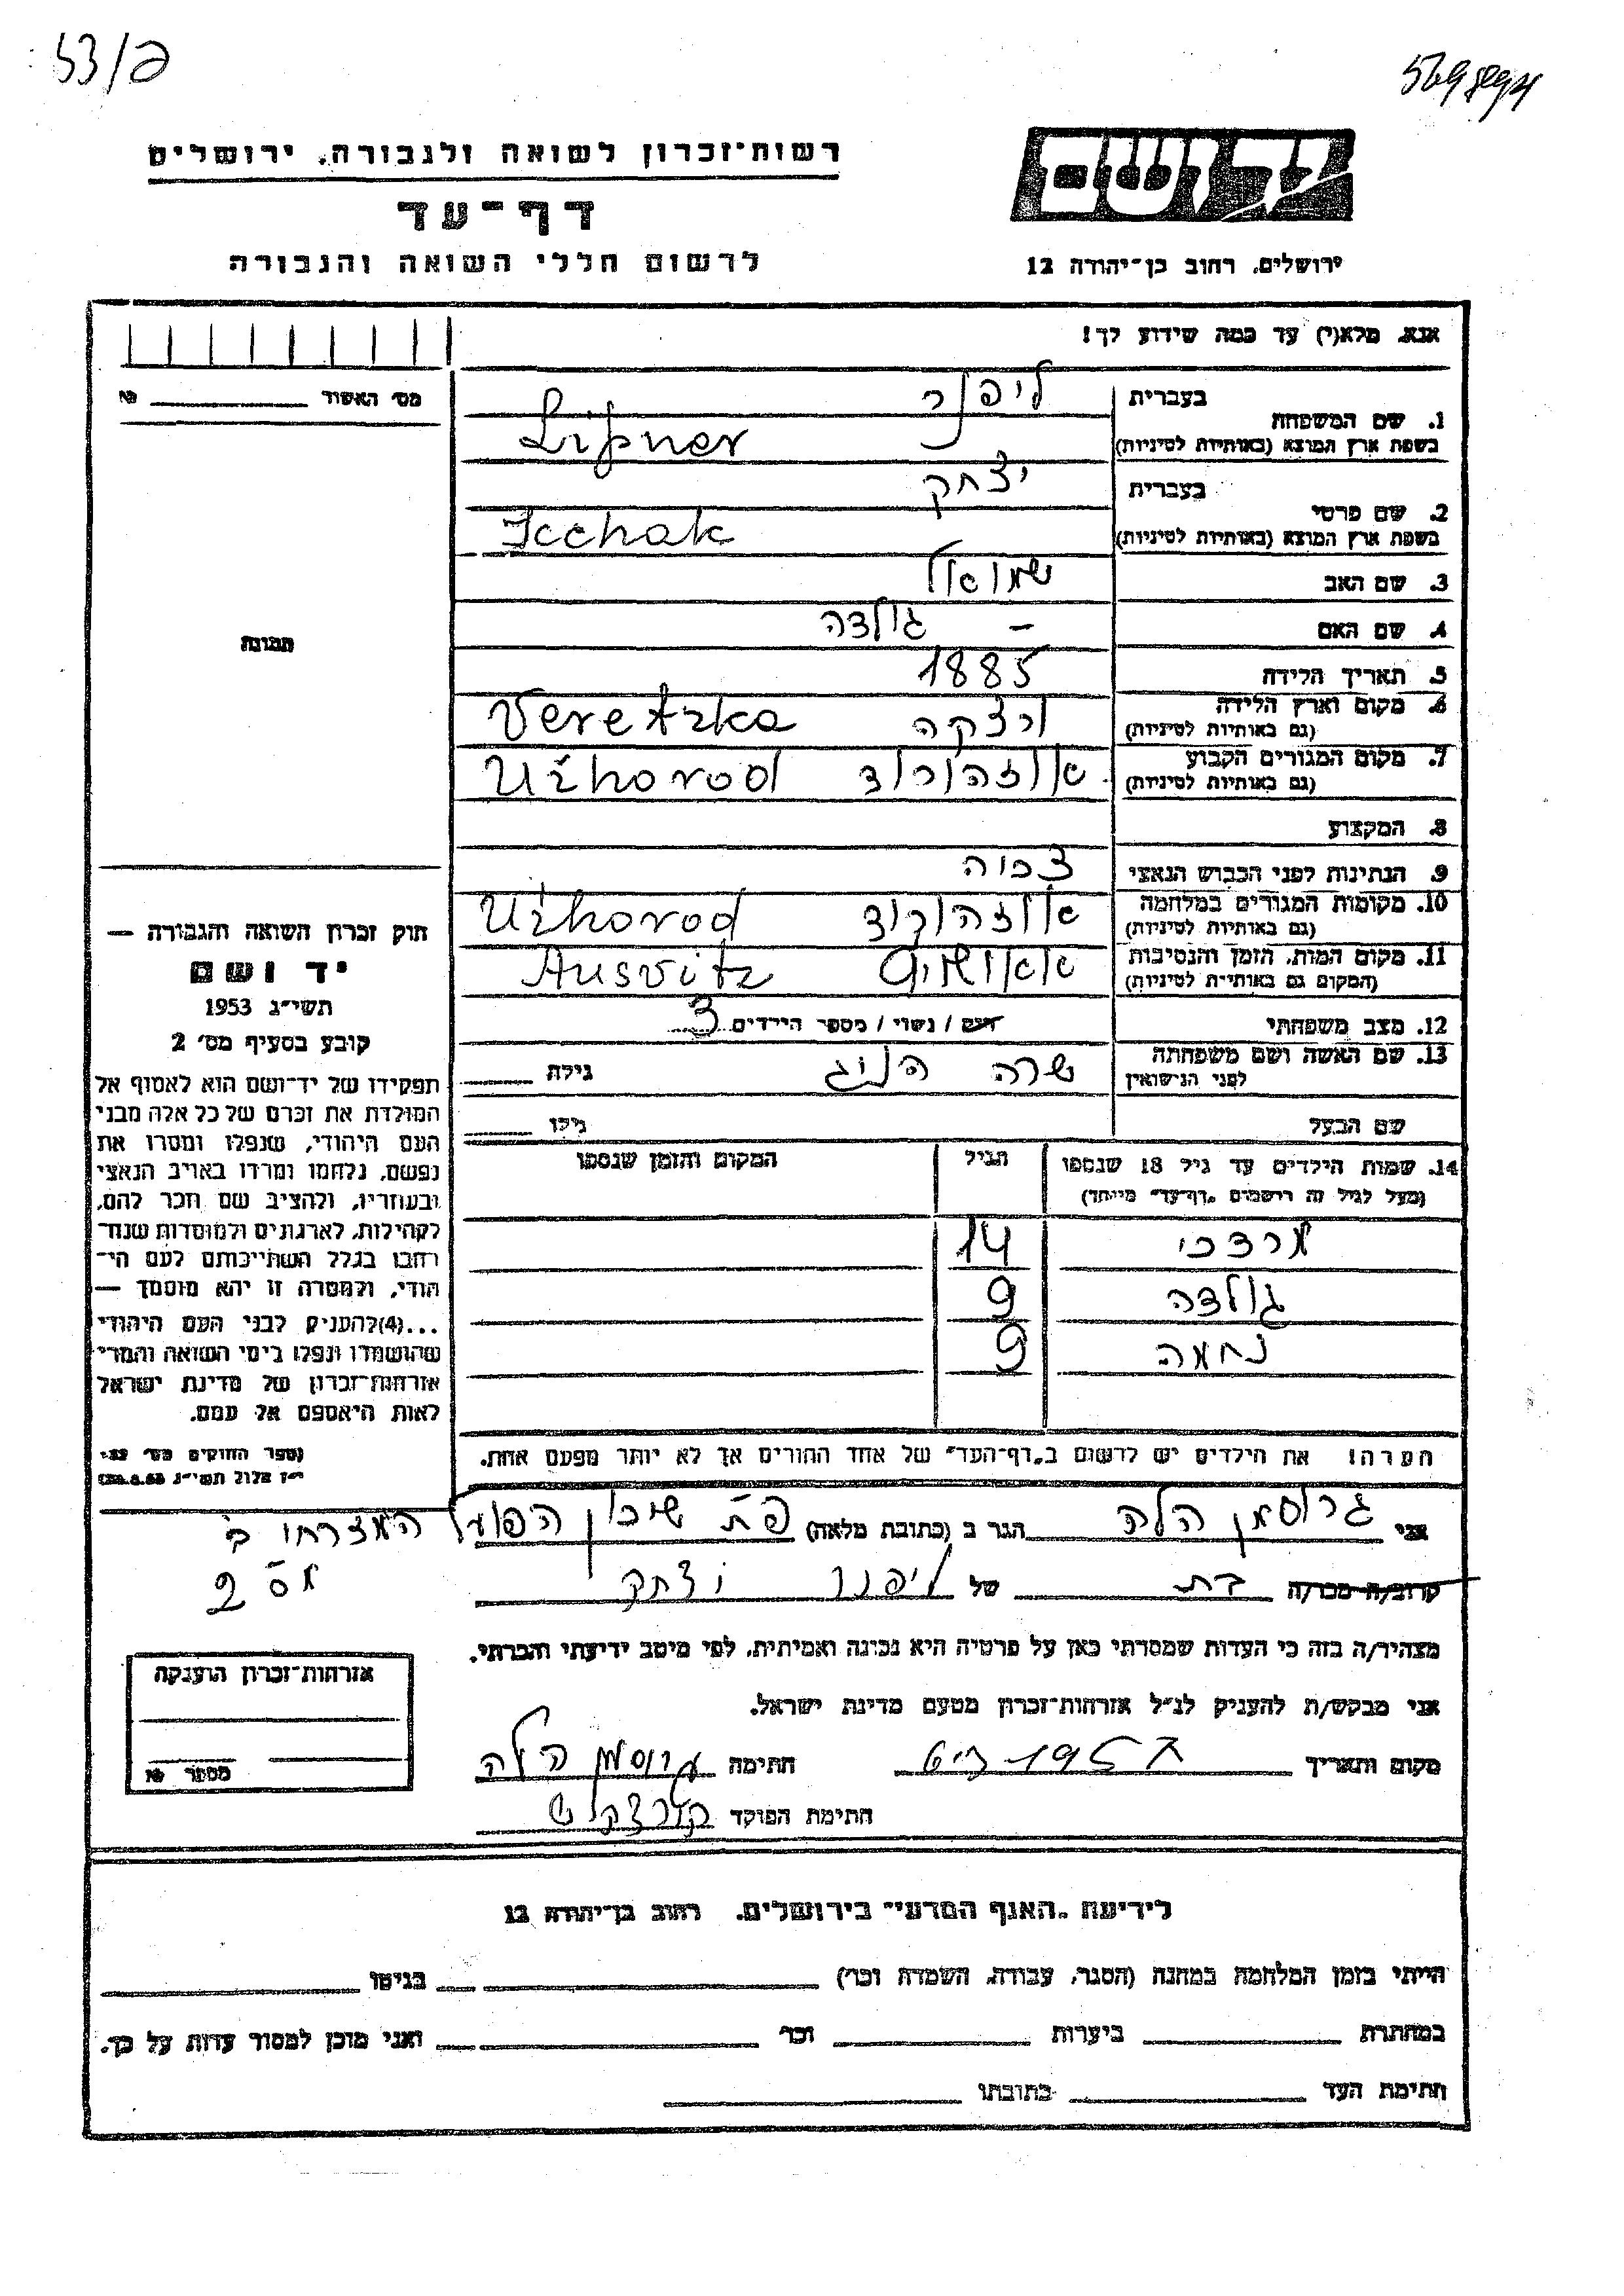 53/פ
יד ושם
ירושלים, רחוב בן־יהודה 12
רשות־זכרון לשואה ולגבורה, ירושלים
דף־עד
לרשום חללי השואה והגבורה
אנא, מלא(י) עד כמה שידוע לך!
מס׳ האשור № 
1. שם המשפחה בעברית ליפנר
בשפת ארץ המוצא (באותיות לטיניות) Lipner
2. שם פרטי בעברית יצחק
בשפת ארץ המוצא (באותיות לטיניות) Icchak
3. שם האב שמואל
4. שם האם – גולדה
5. תאריך הלידה 1885
6. מקום וארץ הלידה (גם באותיות לטיניות) ורצקה Veretzka
7. מקום המגורים הקבוע (גם באותיות לטיניות) אוזהורוד Užhorod
8. המקצוע
9. הנתינות לפני הכבוש הנאצי צכוה
10. מקומות המגורים במלחמה (גם באותיות לטיניות) אוזהורוד Užhorod
11. מקום המות, הזמן והנסיבות (המקום גם באותיות לטיניות) אאושויץ Ausvitz
12. מצב משפחתי רווק / נשוי / מספר הילדים 3
13. שם האשה ושם משפחתה לפני הנישואין שרה הניג גילה
שם הבעל גילו
14. שמות הילדים עד גיל 18 שנספו הגיל המקום והזמן שנספו
(מעל לגיל זה רישמים „דף־עד״ מייחד)
מרדכי 14
גולדה 9
נחמה 9
הערה! את הילדים יש לרשום ב„דף־העד״ של אחד ההורים אך לא יותר מפעם אחת.
תמונה
חוק זכרון השואה והגבורה —
יד ושם
תשי״ג 1953
קובע בסעיף מס׳ 2
תפקידו של יד־ושם הוא לאסוף אל
המולדת את זכרם של כל אלה מבני
העם היהודי, שנפלו ומסרו את
נפשם, נלחמו ומרדו באויב הנאצי
ובעוזריו, ולהציב שם וזכר להם,
לקהילות, לארגונים ולמוסדות שנח־
רבו בגלל השתייכותם לעם הי־
הודי, ולמטרה זו יהא מוסמך —
...(4)להעניק לבני העם היהודי
שהושמדו ונפלו בימי השואה והמרי
אזרחות־זכרון של מדינת ישראל
לאות היאספם אל עמם.
(ספר החוקים מס׳ 132
י״ז אלול תשי״ג 28.8.53)
אני גרוסמן הלה הגר ב (כתובת מלאה) פ״ת שיכון הפועל המזרחי ב׳
מס 2
קרוב/ה מכר/ה בת של ליפנר יצחק
מצהיר/ה בזה כי העדות שמסרתי כאן על פרטיה היא נכונה ואמיתית, לפי מיטב ידיעתי והכרתי.
אני מבקש/ת להעניק לנ״ל אזרחות־זכרון מטעם מדינת ישראל.
מקום ותאריך חתימה גרוסמן הלה
חתימת הפוקד
אזרחות־זכרון הוענקה
מספר №
לידיעת „האגף המדעי״ בירושלים, רחוב בן־יהודה 12
הייתי בזמן המלחמה במחנה (הסגר, עבודה, השמדה וכו׳) בגיטו
במחתרת ביערות וכו׳ ואני מוכן למסור עדות על כך.
חתימת העד כתובתו